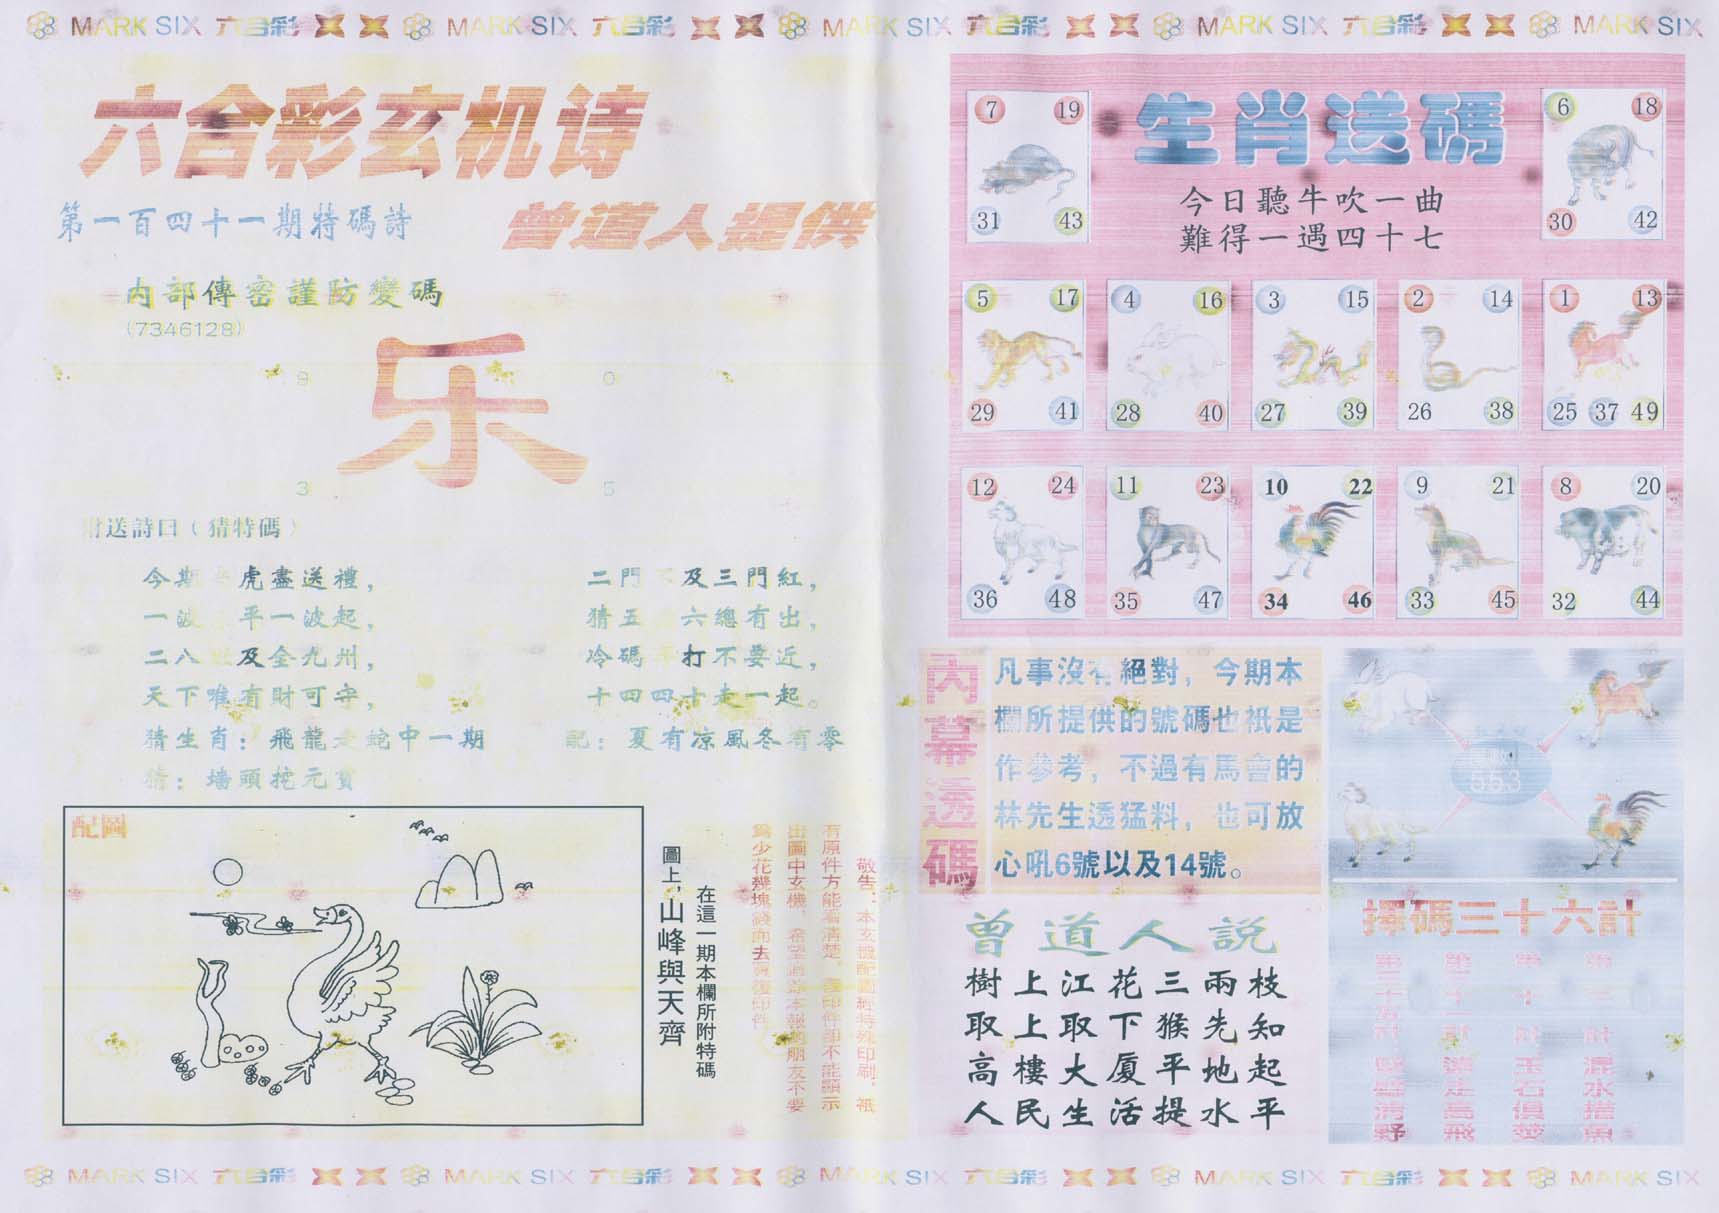 MARK SIX 六合彩 MARK SIX 六合彩 MARK SIX 六合彩 MARK SIX 六合彩 MARK SIX
六合彩玄机诗
第一百四十一期特碼詩
曾道人提供
内部傳密謹防變碼
(7346128)
乐
9 0
3 5
附送詩曰（猜特碼）
今期 虎盡送禮，
一波 平一波起，
二八 及全九州，
天下唯有財可守，
猜生肖：飛龍走蛇中一期
猜：墻頭挖元寶
二門 及三門紅，
猜五 六總有出，
冷碼 打不要近，
十四四十走一起。
配：夏有凉風冬有零
配圖
圖上，山峰與天齊
在這一期本欄所附特碼
敬告：本玄機配圖經特殊印刷，祇
有原件方能看清楚。復印件即不能顯示
出圖中玄機，希望 本報 朋友不要
為少花幾塊錢而去買復印件
生肖送碼
今日聽牛吹一曲
難得一遇四十七
7 19
31 43
6 18
30 42
5 17
29 41
4 16
28 40
3 15
27 39
2 14
26 38
1 13
25 37 49
12 24
36 48
11 23
35 47
10 22
34 46
9 21
33 45
8 20
32 44
內幕透碼
凡事沒有絕對，今期本
欄所提供的號碼也祇是
作參考，不過有馬會的
林先生透猛料，也可放
心吼6號以及14號。
553
曾道人説
樹上江花三兩枝
取上取下猴先知
高樓大廈平地起
人民生活提水平
擇碼三十六計
混水摸魚
玉石俱焚
遠走高飛
堅壁清野
MARK SIX 六合彩 MARK SIX 六合彩 MARK SIX 六合彩 MARK SIX 六合彩 MARK SIX